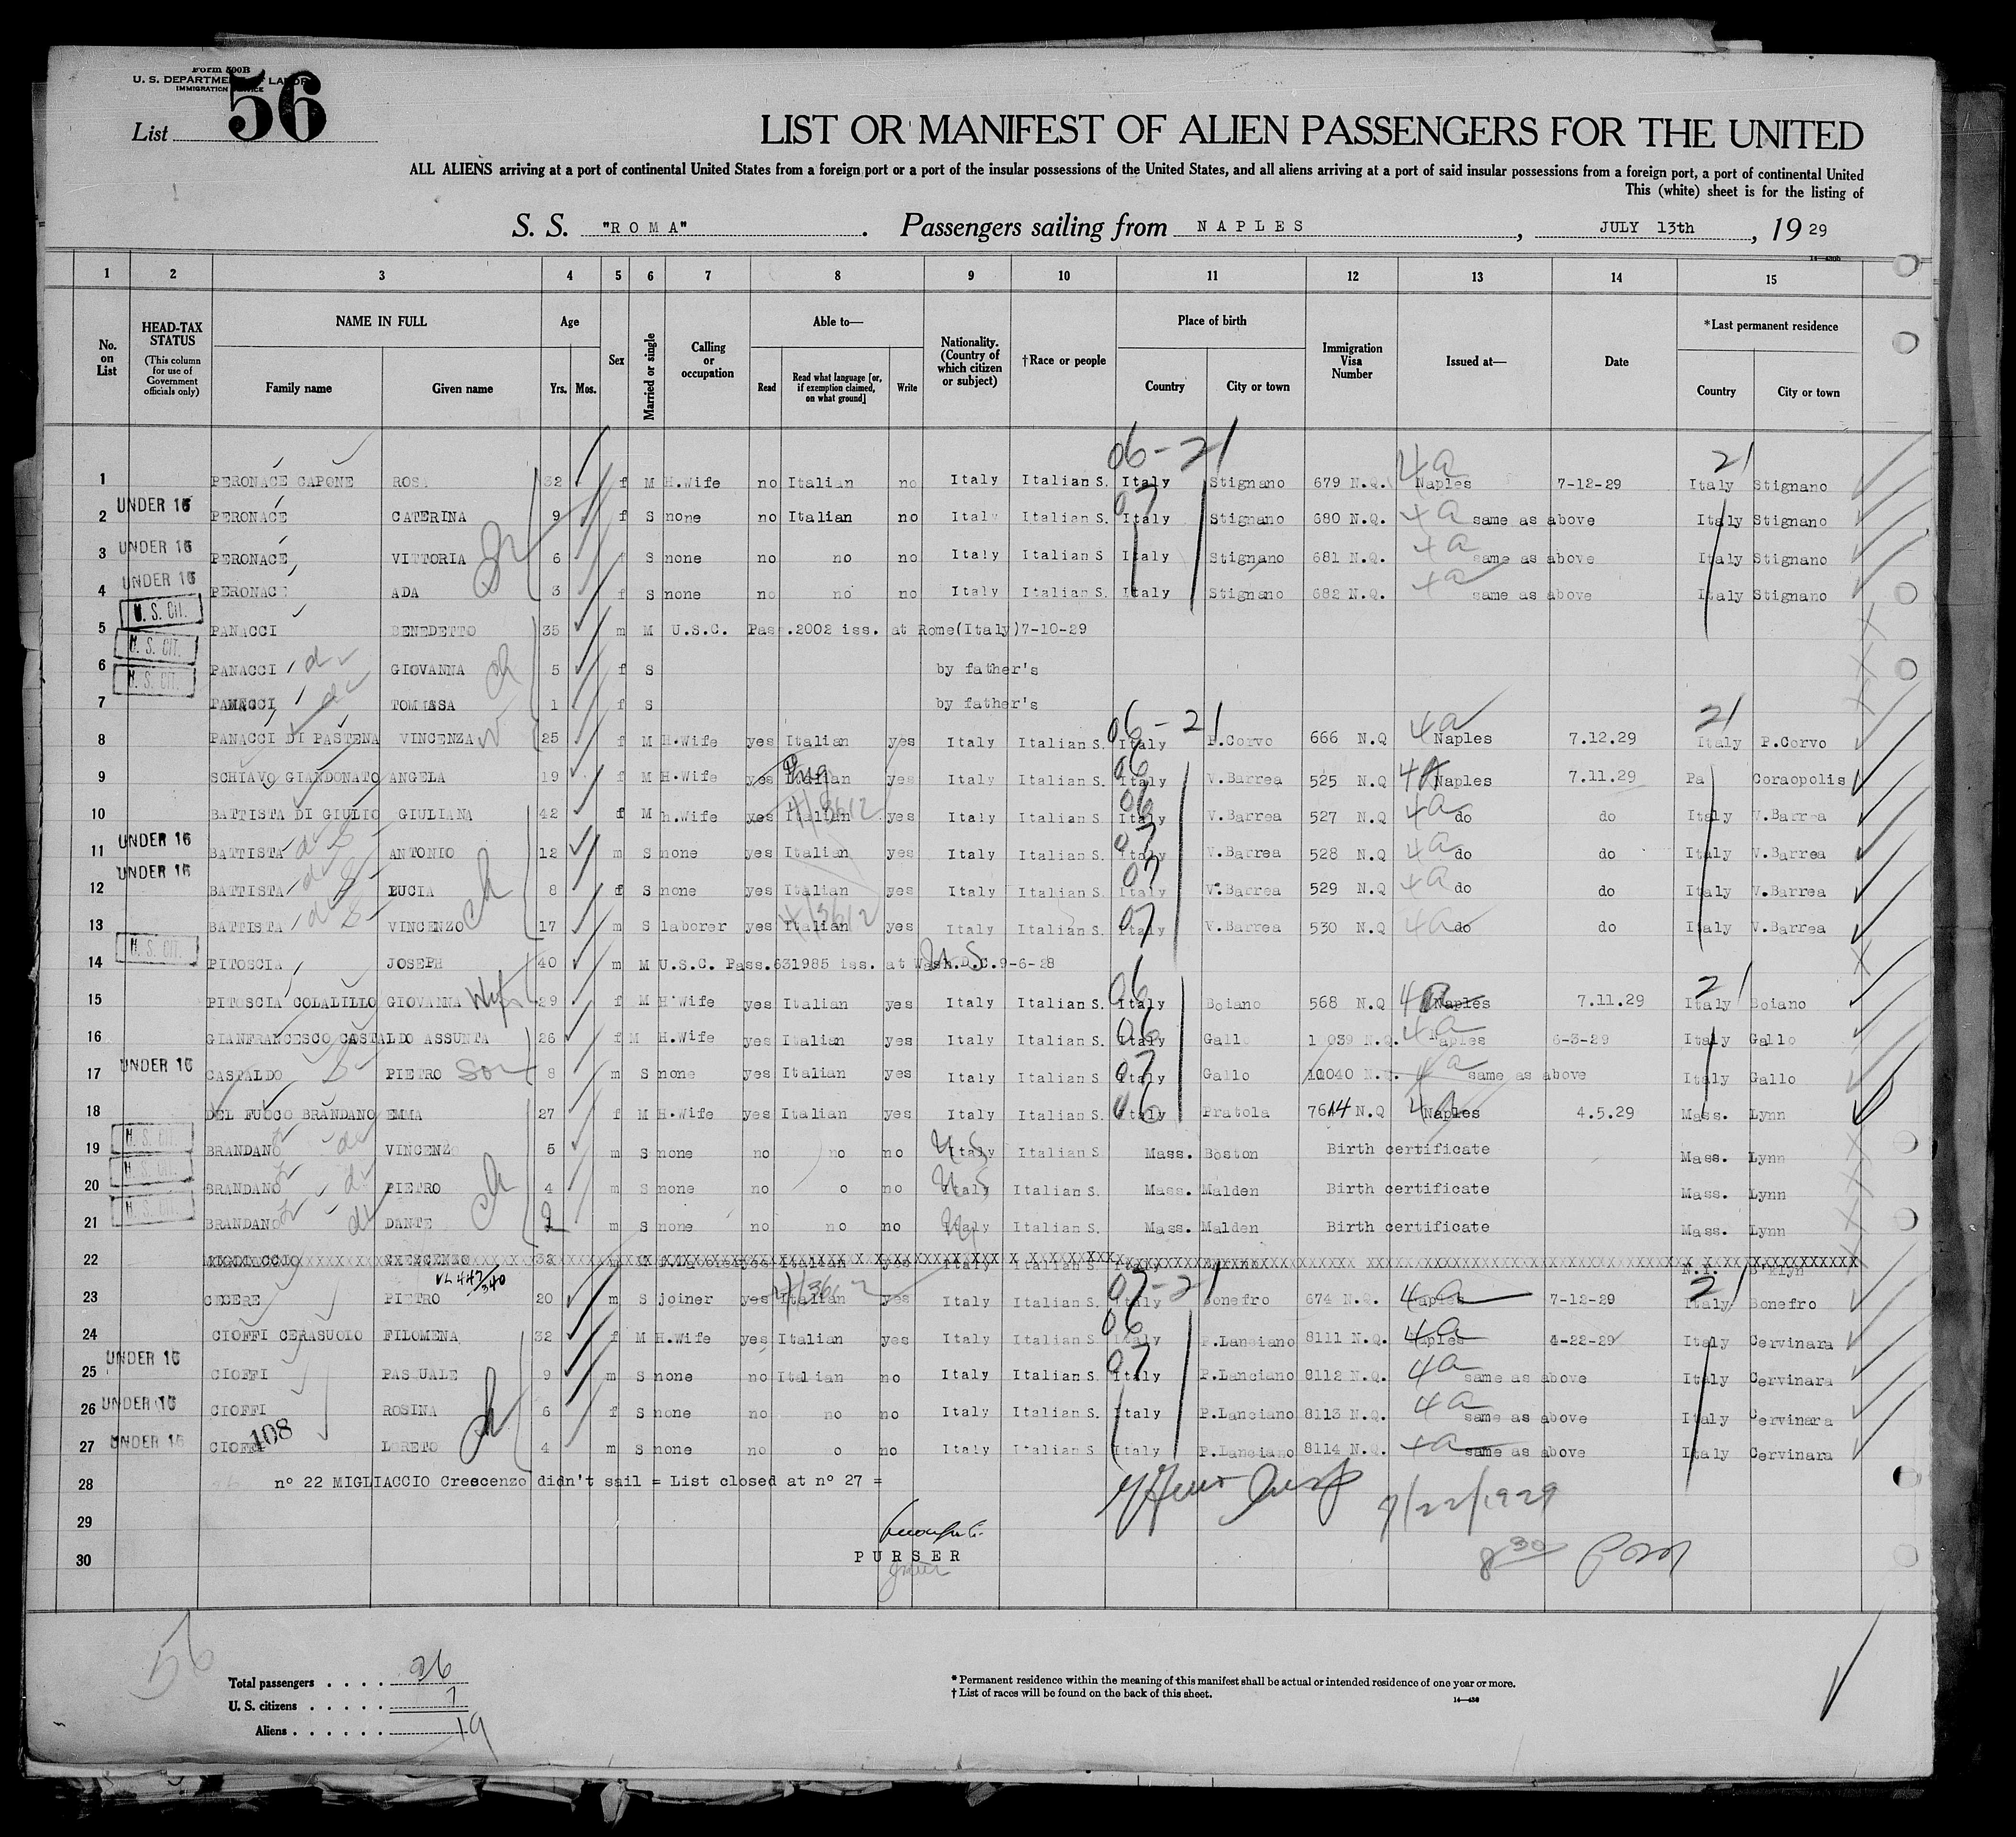 Form 500B
U. S. DEPARTMENT OF LABOR
IMMIGRATION SERVICE
List 56
LIST OR MANIFEST OF ALIEN PASSENGERS FOR THE UNITED
ALL ALIENS arriving at a port of continental United States from a foreign port or a port of the insular possessions of the United States, and all aliens arriving at a port of said insular possessions from a foreign port, a port of continental United
This (white) sheet is for the listing of
S. S. "ROMA". Passengers sailing from NAPLES, JULY 13th, 1929
1 2 3 4 5 6 7 8 9 10 11 12 13 14 15
No. on List
HEAD-TAX STATUS (This column for use of Government officials only)
NAME IN FULL Family name Given name
Age Yrs. Mos.
Sex
Married or single
Calling or occupation
Able to— Read Read what language [or, if exemption claimed, on what ground] Write
Nationality. (Country of which citizen or subject)
†Race or people
Place of birth Country City or town
Immigration Visa Number
Issued at—
Date
*Last permanent residence Country City or town
06-21 4a 21
1 PERONACE CAPONE ROSA 32 f M H.Wife no Italian no Italy Italian S. Italy Stignano 679 N.Q. Naples 7-12-29 Italy Stignano
2 UNDER 16 PERONACE CATERINA 9 f S none no Italian no Italy Italian S. 07 Italy Stignano 680 N.Q. 4a same as above Italy Stignano
3 UNDER 16 PERONACE VITTORIA 6 S none no no no Italy Italian S. Italy Stignano 681 N.Q. 4a same as above Italy Stignano
4 UNDER 16 PERONACE ADA 3 f S none no no no Italy Italian S. Italy Stignano 682 N.Q. 4a same as above Italy Stignano
5 U. S. CIT. PANACCI BENEDETTO 35 m M U.S.C. Pass.2002 iss. at Rome(Italy)7-10-29
6 U. S. CIT. PANACCI GIOVANNA 5 f S by father's
7 U. S. CIT. PANACCI TOMMASA 1 f S by father's
06-21 4a 21
8 PANACCI DI PASTENA VINCENZA W 25 f M H.Wife yes Italian yes Italy Italian S. Italy P.Corvo 666 N.Q Naples 7.12.29 Italy P.Corvo
9 SCHIAVO GIANDONATO ANGELA 19 f M H.Wife yes Italian Eng yes Italy Italian S. 06 Italy V.Barrea 525 N.Q 4A Naples 7.11.29 Pa Coraopolis
10 BATTISTA DI GIULIO GIULIANA 42 f M h.Wife yes Italian yes Italy Italian S. 06 Italy V.Barrea 527 N.Q 4a do do Italy V.Barrea
11 UNDER 16 BATTISTA ANTONIO 12 m S none yes Italian yes Italy Italian S. 07 Italy V.Barrea 528 N.Q 4a do do Italy V.Barrea
12 UNDER 16 BATTISTA LUCIA 8 f S none yes Italian yes Italy Italian S. 07 Italy V.Barrea 529 N.Q 4a do do Italy V.Barrea
13 BATTISTA VINCENZO ch 17 m S laborer yes Italian yes Italy Italian S. 07 Italy V.Barrea 530 N.Q 4a do do Italy V.Barrea
14 U. S. CIT. PITOSCIA JOSEPH 40 m M U.S.C. Pass.631985 iss. at Wash.D.C.9-6-28
15 PITOSCIA COLALILLO GIOVANNA Wife 29 f M H.Wife yes Italian yes Italy Italian S. 06 Italy Boiano 568 N.Q 4a Naples 7.11.29 21 Italy Boiano
16 GIANFRANCESCO CASTALDO ASSUNTA 26 f M H.Wife yes Italian yes Italy Italian S. 06 Italy Gallo 1 039 N.Q. 4a Naples 6-3-29 Italy Gallo
17 UNDER 16 CASTALDO PIETRO Son 8 m S none yes Italian yes Italy Italian S. 07 Italy Gallo 10040 N.Q. 4a same as above Italy Gallo
18 DEL FUOCO BRANDANO EMMA 27 f M H.Wife yes Italian yes Italy Italian S. 06 Italy Pratola 7614 N.Q 4a Naples 4.5.29 Mass. Lynn
19 U. S. CIT. BRANDANO VINCENZO 5 m S none no no no Italy U.S. Italian S Mass. Boston Birth certificate Mass. Lynn
20 U. S. CIT. BRANDANO PIETRO 4 m S none no o no Italy U.S. Italian S. Mass. Malden Birth certificate Mass. Lynn
21 U. S. CIT. BRANDANO DANTE ch 2 m S none no no no Italy Italian S. Mass. Malden Birth certificate Mass. Lynn
22 MIGLIACCIO CRESCENZO 32 Italian yes Italy Italian S. Italy N.Y. B'klyn
VL 447/340
23 CECERE PIETRO 20 m S joiner yes Italian yes Italy Italian S. 07-21 Italy Bonefro 674 N.Q. 4a Naples 7-12-29 21 Italy Bonefro
24 CIOFFI CERASUOLO FILOMENA 32 f M H.Wife yes Italian yes Italy Italian S. 06 Italy P.Lanciano 8111 N.Q. 4a Naples 4-22-29 Italy Cervinara
25 UNDER 16 CIOFFI PASQUALE 9 m S none no Italian no Italy Italian S. 07 Italy P.Lanciano 8112 N.Q. 4a same as above Italy Cervinara
26 UNDER 16 CIOFFI ROSINA 6 f S none no no no Italy Italian S. Italy P.Lanciano 8113 N.Q. 4a same as above Italy Cervinara
27 UNDER 16 CIOFFI 108 LORETO ch 4 m S none no o no Italy Italian S Italy P.Lanciano 8114 N.Q. 4a same as above Italy Cervinara
28 n° 22 MIGLIACCIO Crescenzo didn't sail = List closed at n° 27 =
29 7/22/1929
30 PURSER 8 30 Pm
56
Total passengers . . . . 26
U. S. citizens . . . . 7
Aliens . . . . . . 19
* Permanent residence within the meaning of this manifest shall be actual or intended residence of one year or more.
† List of races will be found on the back of this sheet.